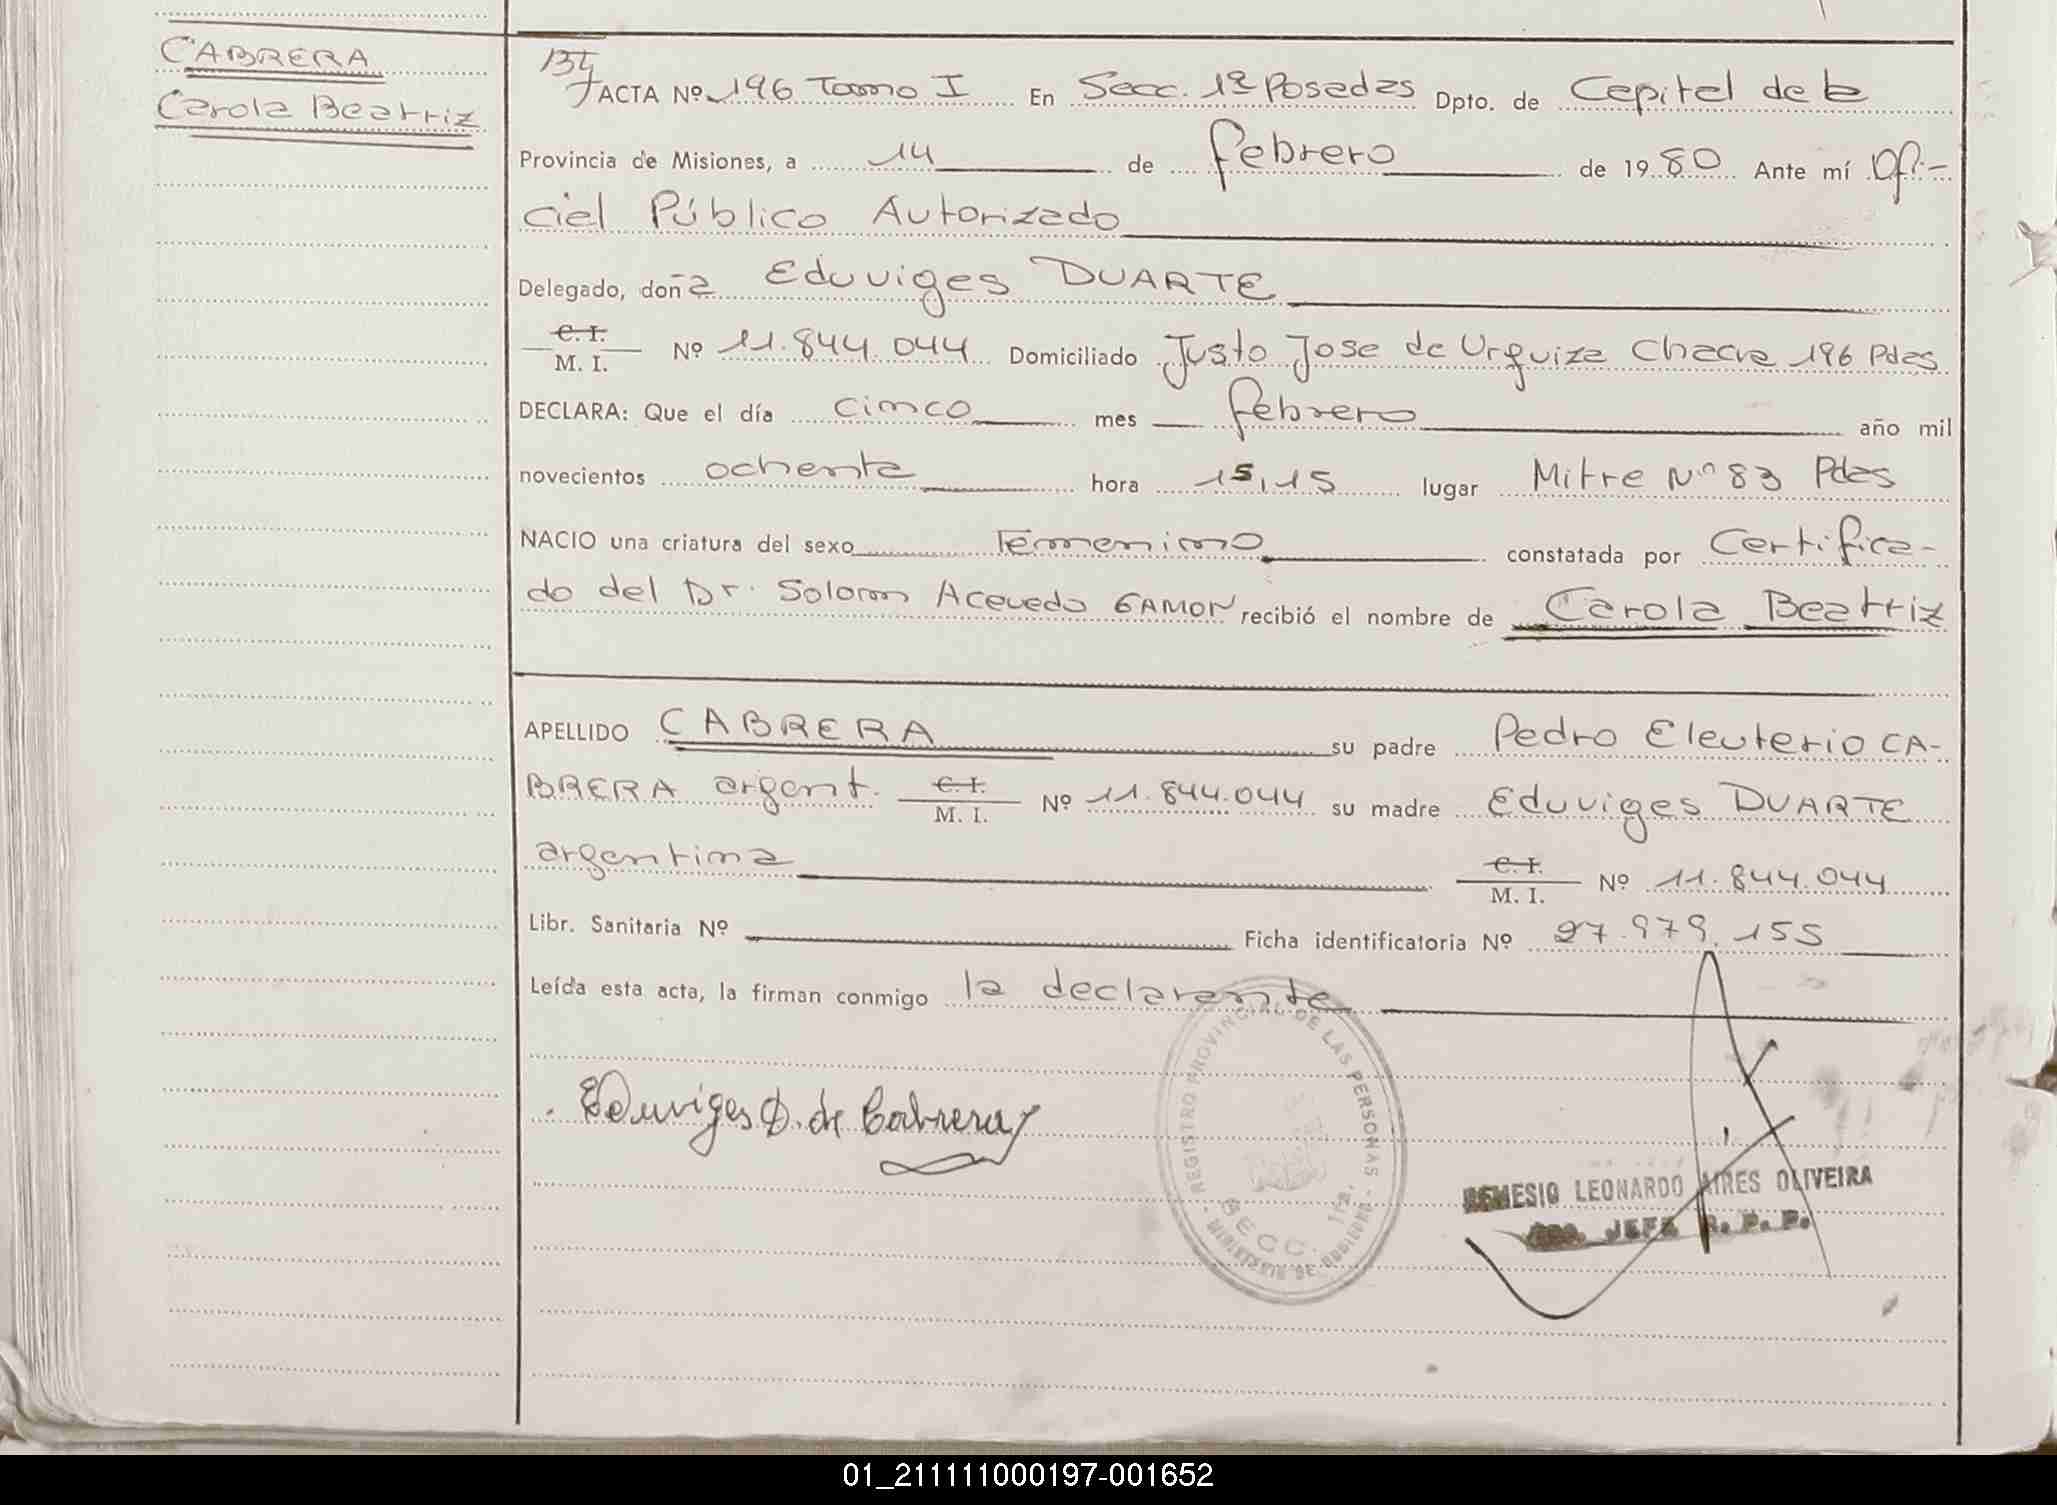 CABRERA
Carola Beatriz
ACTA Nº 196 Tomo I En Secc. 1ª Posadas Dpto. de Capital de la
Provincia de Misiones, a 14 de febrero de 1980 Ante mí Ofi-
cial Público Autorizado
Delegado, doña Eduviges DUARTE
C. I.
M. I. Nº 11.844.044 Domiciliado Justo Jose de Urquiza Chacra 196 Pdas
DECLARA: Que el día cinco mes febrero año mil
novecientos ochenta hora 15,15 lugar Mitre Nº 83 Pdas
NACIO una criatura del sexo Femenino constatada por Certifica-
do del Dr. Solom Acevedo GAMON recibió el nombre de Carola Beatriz
APELLIDO CABRERA su padre Pedro Eleuterio CA-
BRERA argent. C. I. M. I. Nº 11.844.044 su madre Eduviges DUARTE
argentina C. I. M. I. Nº 11.844.044
Libr. Sanitaria Nº Ficha identificatoria Nº 27.979.155
Leída esta acta, la firman conmigo la declarante
Eduviges D. de Cabrera
REGISTRO PROVINCIAL DE LAS PERSONAS
SECC. 1ra.
MINISTERIO DE GOBIERNO
REMESIO LEONARDO AIRES OLIVEIRA
JEFE R. P. P.
01_211111000197-001652